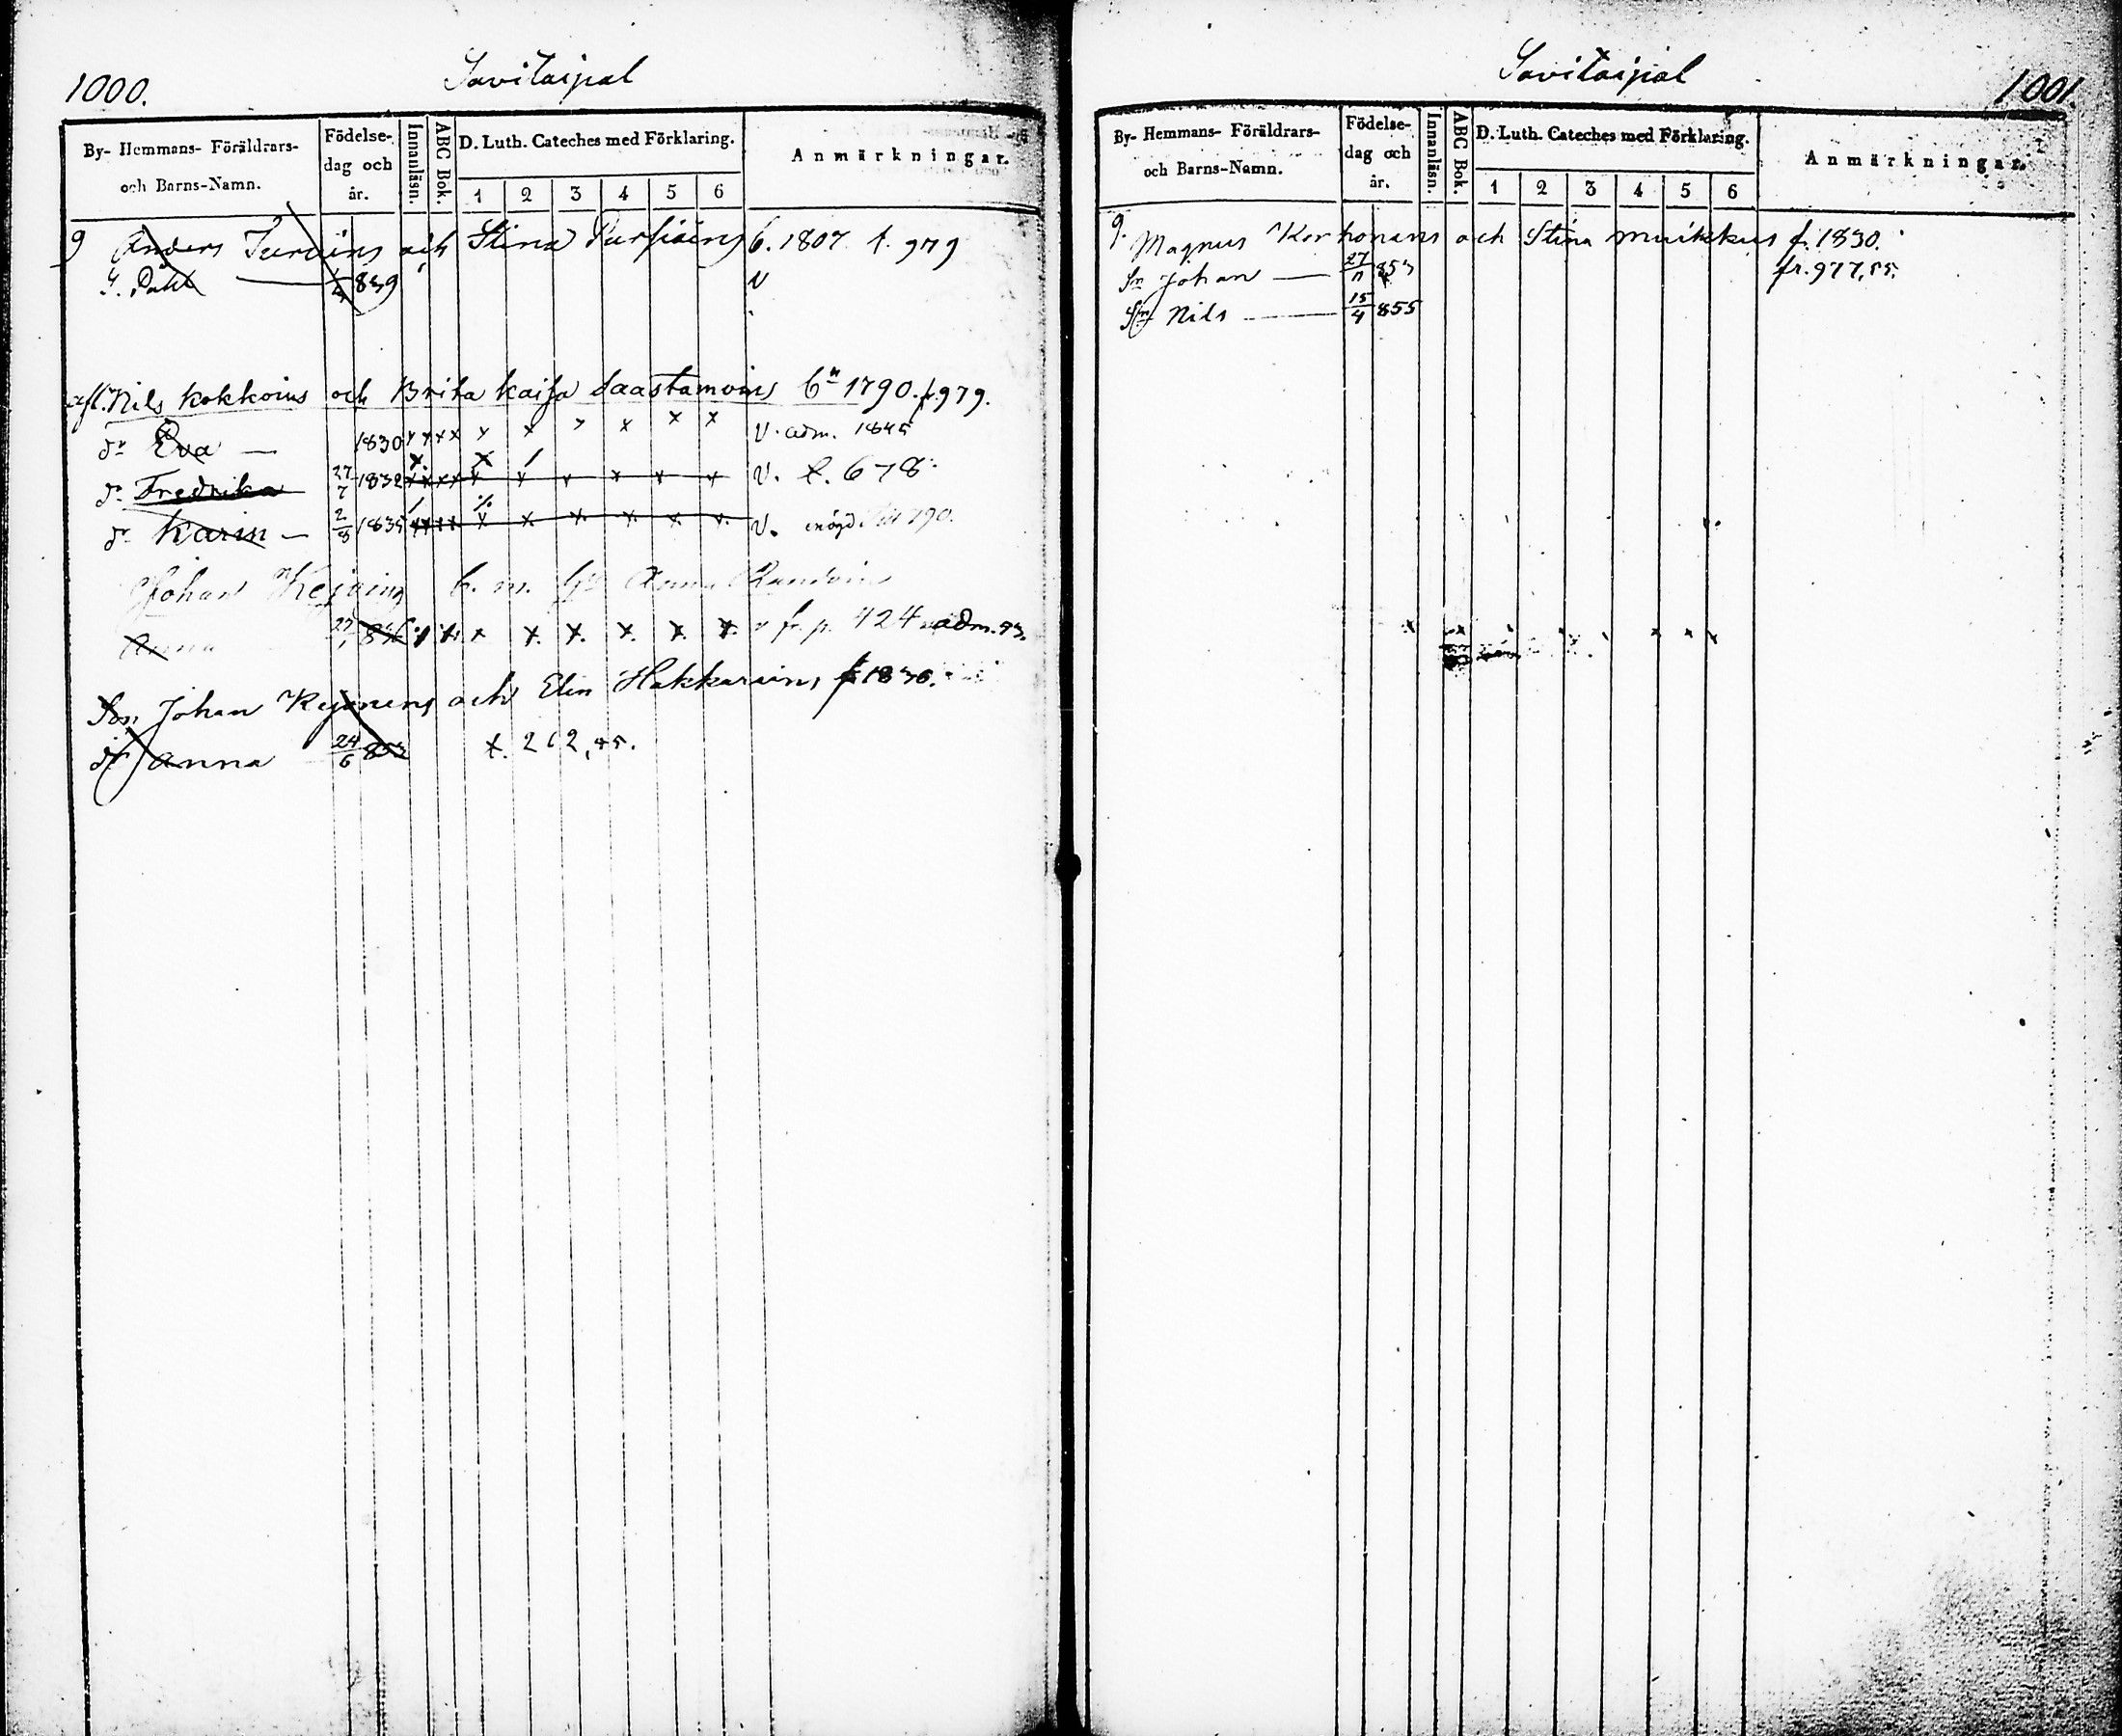 1000.
Savitaipal
By- Hemmans- Föräldrars- och Barns-Namn.
Födelse- dag och år.
Innanläsn.
ABC Bok.
D. Luth. Cateches med Förklaring.
1 2 3 4 5 6
Anmärkningar.
9 Anders och Stina b. 1807 t. 979
839 v
afl. Nils Kokkoins och Brita Kaisa Saastamoins 1790. 979.
dr Eva — 1830 x x x x x x x x x x v. adm. 1845
dr Fredrika 27/7 1832 x x x x x x x x x x v. t. 678
dr Karin — 2/8 1835 x x x x x x x x x x v. 790.
Johan Anna
Anna x x x x x x fr. p. 424 adm. 53.
Son Johan och Elin f 1830.
dr Anna 24/6 853 t. 262, 55.
Savitaipal
1001.
By- Hemmans- Föräldrars- och Barns-Namn.
Födelse- dag och år.
Innanläsn.
ABC Bok.
D. Luth. Cateches med Förklaring.
1 2 3 4 5 6
Anmärkningar.
9. Magnus Korhonans och Stina Muikkus f. 1830.
Sn Johan — 27/11 853 fr. 977, 55.
Sn Nils — 15/4 855